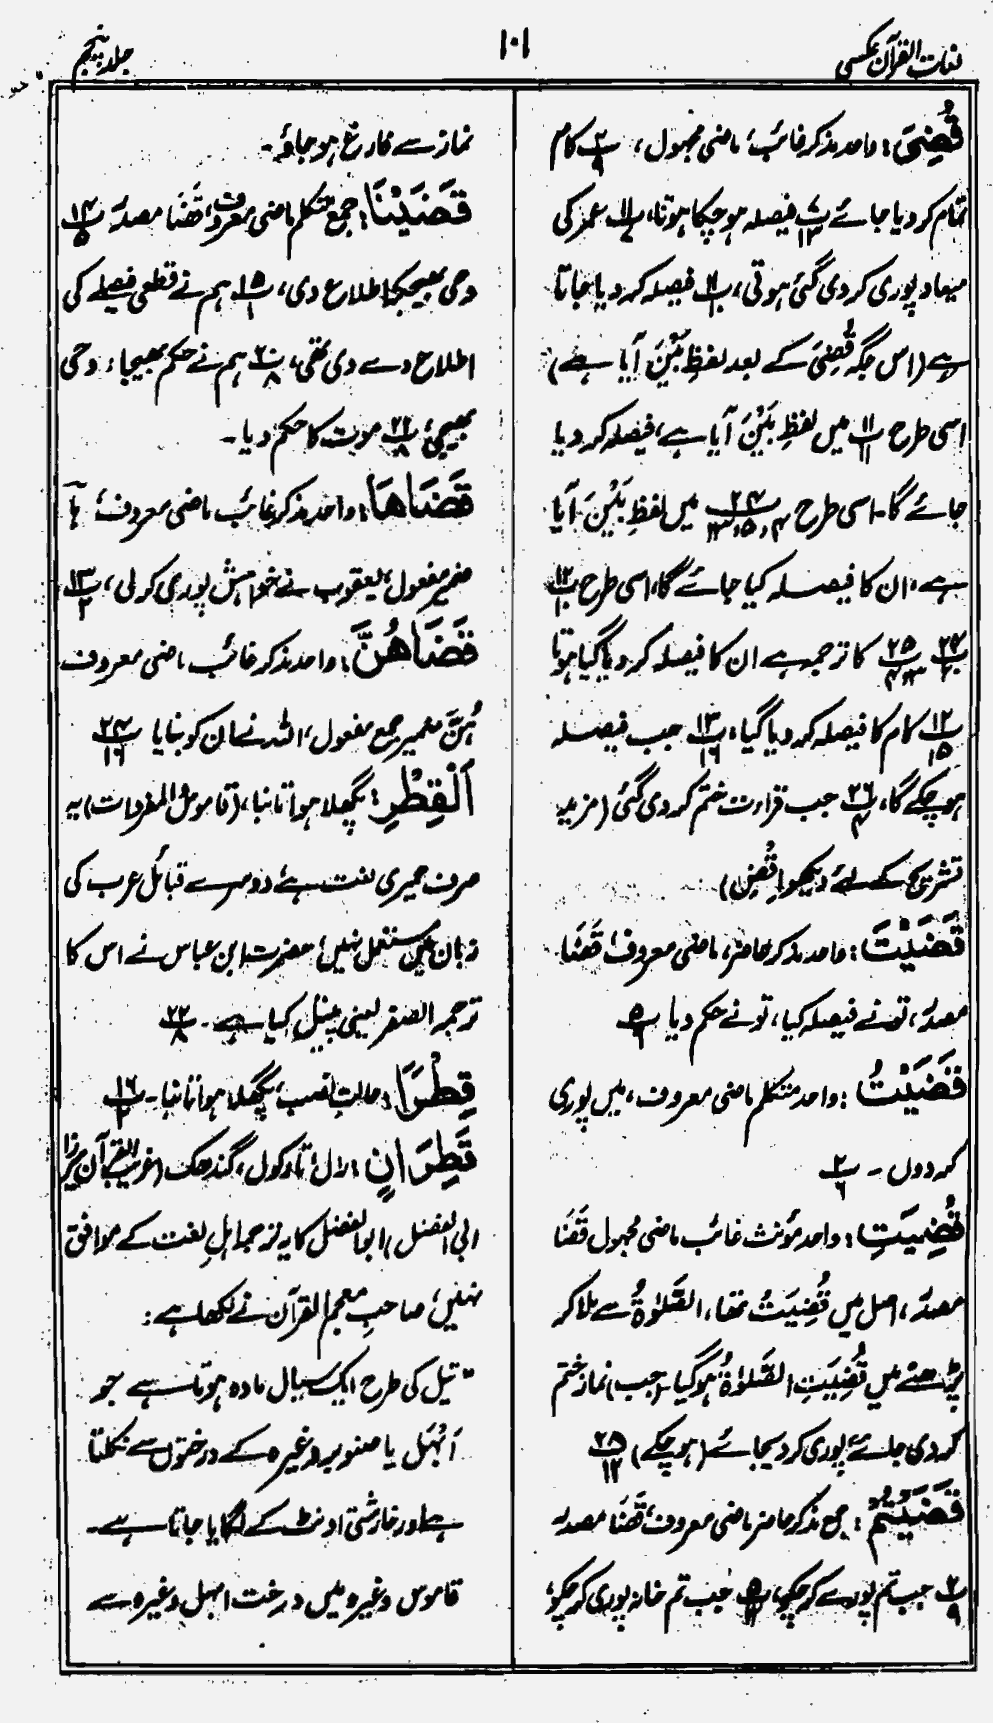 لغات القرآن عکسی
۱۰۱
جلد پنجم
قُضِیَ: واحد مذکر غائب، ماضی مجہول، پ۲/۹ کام
تمام کر دیا جائے پ۷/۱۳ فیصلہ ہو چکا ہوتا، پ۱۱ عمر کی
میعاد پوری کر دی گئی ہوتی، پ۱۱ فیصلہ کر دیا جاتا
ہے (اس جگہ قُضِیَ کے بعد لفظِ بَیْنَ آیا ہے)
اسی طرح پ۱۱/۱۱ میں لفظِ بَیْنَ آیا ہے، فیصلہ کر دیا
جائے گا۔ اسی طرح پ۲۴/۴،۵ میں لفظِ بَیْنَ آیا
ہے، ان کا فیصلہ کیا جائے گا، اسی طرح پ۱۲/۱۰
پ۲۴ پ۲۵ کا ترجمہ ہے ان کا فیصلہ کر دیا گیا ہوتا
پ۱۲/۱۵ کام کا فیصلہ کر دیا گیا، پ۱۳/۱۶ جب فیصلہ
ہو چکے گا، پ۲۶/۴ جب قرارت ختم کر دی گئی (مزید
تشریح کے لئے دیکھو اقْضِ)
قَضَیْتَ: واحد مذکر حاضر، ماضی معروف، قَضَا
مصدر، تو نے فیصلہ کیا، تو نے حکم دیا پ۵/۶
قَضَیْتُ: واحد متکلم ماضی معروف، میں پوری
کر دوں۔ پ۲/۶
قُضِیَتِ: واحد مؤنث غائب ماضی مجہول قَضَا
مصدر، اصل میں قُضِیَتْ تھا، الصَّلوٰۃُ سے ملا کر
پڑھنے میں قُضِیَتِ الصَّلوٰۃُ ہو گیا (جب) نماز ختم
کر دی جائے پوری کر دیجائے (ہو چکے) پ۲۸/۱۲
قَضَیْتُمْ: جمع مذکر حاضر ماضی معروف، قَضَا مصدر
پ۲/۹ جب تم پورے کر چکو، پ۵ جب تم خانہ پوری کر چکو،
نماز سے فارغ ہو جاؤ۔
قَضَیْنَا: جمع متکلم ماضی معروف، قَضَا مصدر پ۱۴/۵
وحی بھیجکر اطلاع دی، پ۱۵/۱ ہم نے قطعی فیصلے کی
اطلاع دے دی تھی، پ۲۰/۸ ہم نے حکم بھیجا، وحی
بھیجی، پ۲۲/۸ موت کا حکم دیا۔
قَضَاهَا: واحد مذکر غائب ماضی معروف، ہا
ضمیر مفعول، یعقوب نے خواہش پوری کر لی، پ۱۳/۲
قَضَاهُنَّ: واحد مذکر غائب ماضی معروف
ہُنَّ ضمیر جمع مفعول، اللہ نے ان کو بنایا پ۲۴/۱۶
اَلْقِطْرِ: پگھلا ہوا تانبا، (قاموس و المفردات) یہ
صرف حمیری لغت ہے، دوسرے قبائل عرب کی
زبان میں مستعمل نہیں، حضرت ابن عباس نے اس کا
ترجمہ الصفر یعنی پیتل کیا ہے۔ پ۲۲/۸
قِطْرًا: حالتِ نصب، پگھلا ہوا تانبا۔ پ۱۶/۲
قَطِرَانٍ: رال، تارکول، گندھک (غریب القرآن میرزا
ابی الفضل) ابوالفضل کا یہ ترجمہ اہلِ لغت کے موافق
نہیں، صاحبِ معجم القرآن نے لکھا ہے:
"تیل کی طرح ایک سیال مادہ ہوتا ہے جو
اَبْہَل یا صنوبر وغیرہ کے درختوں سے نکلتا
ہے اور خارشتی اونٹ کے لگایا جاتا ہے۔
قاموس وغیرہ میں درخت ابہل وغیرہ سے